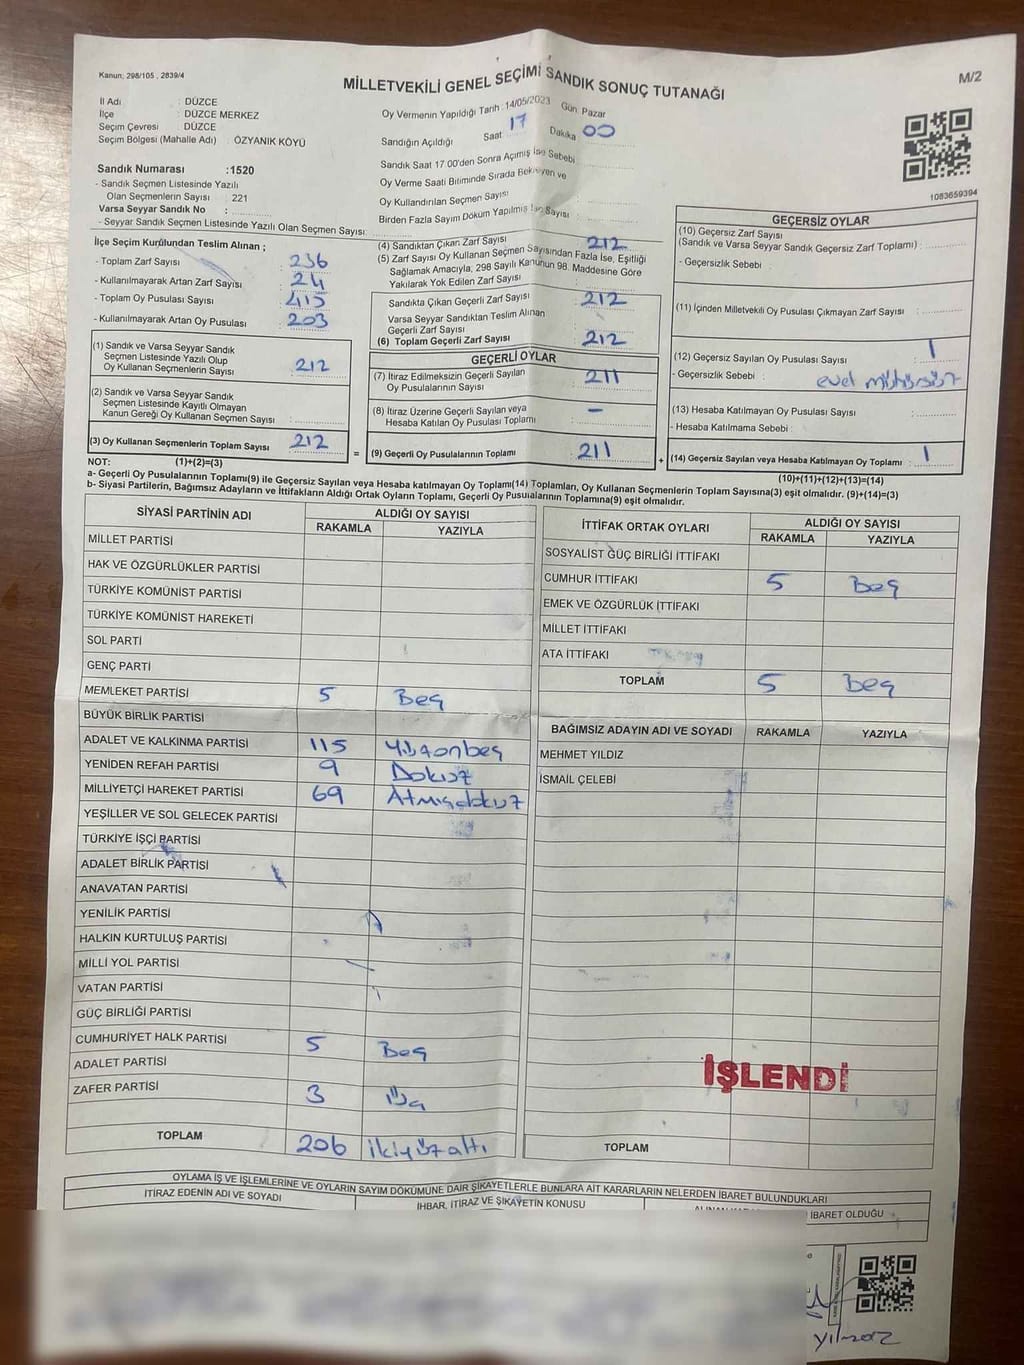 Kanun; 298/105 , 2839/4
MİLLETVEKİLİ GENEL SEÇİMİ SANDIK SONUÇ TUTANAĞI
M/2
İl Adı : DÜZCE
İlçe : DÜZCE MERKEZ
Seçim Çevresi : DÜZCE
Seçim Bölgesi (Mahalle Adı) : ÖZYANIK KÖYÜ
Sandık Numarası :1520
- Sandık Seçmen Listesinde Yazılı
Olan Seçmenlerin Sayısı : 221
Varsa Seyyar Sandık No :
- Seyyar Sandık Seçmen Listesinde Yazılı Olan Seçmen Sayısı:
Oy Vermenin Yapıldığı Tarih : 14/05/2023 Gün: Pazar
Sandığın Açıldığı Saat : 17 Dakika : 00
Sandık Saat 17 00'den Sonra Açılmış İse Sebebi
Oy Verme Saati Bitiminde Sırada Bekleyen ve
Oy Kullandırılan Seçmen Sayısı
Birden Fazla Sayım Döküm Yapılmış İse Sayısı
1083659394
İlçe Seçim Kurulundan Teslim Alınan ;
- Toplam Zarf Sayısı : 236
- Kullanılmayarak Artan Zarf Sayısı : 24
- Toplam Oy Pusulası Sayısı : 415
- Kullanılmayarak Artan Oy Pusulası : 203
(1) Sandık ve Varsa Seyyar Sandık
Seçmen Listesinde Yazılı Olup
Oy Kullanan Seçmenlerin Sayısı : 212
(2) Sandık ve Varsa Seyyar Sandık
Seçmen Listesinde Kayıtlı Olmayan
Kanun Gereği Oy Kullanan Seçmen Sayısı :
(3) Oy Kullanan Seçmenlerin Toplam Sayısı : 212
(4) Sandıktan Çıkan Zarf Sayısı : 212
(5) Zarf Sayısı Oy Kullanan Seçmen Sayısından Fazla İse, Eşitliği
Sağlamak Amacıyla; 298 Sayılı Kanunun 98. Maddesine Göre
Yakılarak Yok Edilen Zarf Sayısı
Sandıkta Çıkan Geçerli Zarf Sayısı : 212
Varsa Seyyar Sandıktan Teslim Alınan
Geçerli Zarf Sayısı
(6) Toplam Geçerli Zarf Sayısı : 212
GEÇERLİ OYLAR
(7) İtiraz Edilmeksizin Geçerli Sayılan
Oy Pusulalarının Sayısı : 211
(8) İtiraz Üzerine Geçerli Sayılan veya
Hesaba Katılan Oy Pusulası Toplamı : -
= (9) Geçerli Oy Pusulalarının Toplamı : 211
GEÇERSİZ OYLAR
(10) Geçersiz Zarf Sayısı
(Sandık ve Varsa Seyyar Sandık Geçersiz Zarf Toplamı) :
- Geçersizlik Sebebi :
(11) İçinden Milletvekili Oy Pusulası Çıkmayan Zarf Sayısı :
(12) Geçersiz Sayılan Oy Pusulası Sayısı : 1
- Geçersizlik Sebebi : evel mühürsüz
(13) Hesaba Katılmayan Oy Pusulası Sayısı :
- Hesaba Katılmama Sebebi :
+ (14) Geçersiz Sayılan veya Hesaba Katılmayan Oy Toplamı : 1
NOT: (1)+(2)=(3) (10)+(11)+(12)+(13)=(14)
a- Geçerli Oy Pusulalarının Toplamı(9) ile Geçersiz Sayılan veya Hesaba katılmayan Oy Toplamı(14) Toplamları, Oy Kullanan Seçmenlerin Toplam Sayısına(3) eşit olmalıdır. (9)+(14)=(3)
b- Siyasi Partilerin, Bağımsız Adayların ve İttifakların Aldığı Ortak Oyların Toplamı, Geçerli Oy Pusulalarının Toplamına(9) eşit olmalıdır.
SİYASİ PARTİNİN ADI ALDIĞI OY SAYISI
RAKAMLA YAZIYLA
MİLLET PARTİSİ
HAK VE ÖZGÜRLÜKLER PARTİSİ
TÜRKİYE KOMÜNİST PARTİSİ
TÜRKİYE KOMÜNİST HAREKETİ
SOL PARTİ
GENÇ PARTİ
MEMLEKET PARTİSİ 5 Beş
BÜYÜK BİRLİK PARTİSİ
ADALET VE KALKINMA PARTİSİ 115 Yüzonbeş
YENİDEN REFAH PARTİSİ 9 Dokuz
MİLLİYETÇİ HAREKET PARTİSİ 69 Atmışdokuz
YEŞİLLER VE SOL GELECEK PARTİSİ
TÜRKİYE İŞÇİ PARTİSİ
ADALET BİRLİK PARTİSİ
ANAVATAN PARTİSİ
YENİLİK PARTİSİ
HALKIN KURTULUŞ PARTİSİ
MİLLİ YOL PARTİSİ
VATAN PARTİSİ
GÜÇ BİRLİĞİ PARTİSİ
CUMHURİYET HALK PARTİSİ 5 Beş
ADALET PARTİSİ
ZAFER PARTİSİ 3 Üç
TOPLAM 206 ikiyüzaltı
İTTİFAK ORTAK OYLARI ALDIĞI OY SAYISI
RAKAMLA YAZIYLA
SOSYALİST GÜÇ BİRLİĞİ İTTİFAKI
CUMHUR İTTİFAKI 5 Beş
EMEK VE ÖZGÜRLÜK İTTİFAKI
MİLLET İTTİFAKI
ATA İTTİFAKI
TOPLAM 5 Beş
BAĞIMSIZ ADAYIN ADI VE SOYADI RAKAMLA YAZIYLA
MEHMET YILDIZ
İSMAİL ÇELEBİ
İŞLENDİ
TOPLAM
OYLAMA İŞ VE İŞLEMLERİNE VE OYLARIN SAYIM DÖKÜMÜNE DAİR ŞİKAYETLERLE BUNLARA AİT KARARLARIN NELERDEN İBARET BULUNDUKLARI
İTİRAZ EDENİN ADI VE SOYADI İHBAR, İTİRAZ VE ŞİKAYETİN KONUSU İBARET OLDUĞU
yılmaz